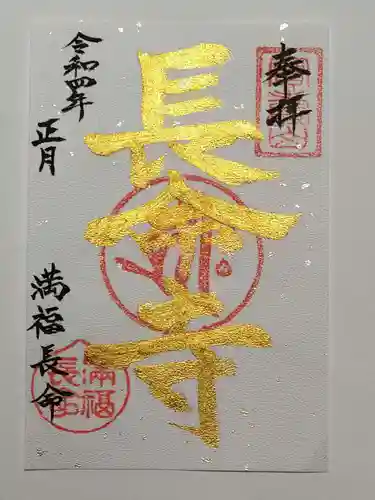 奉拝
長命寺
令和四年
正月
満福長命
満福
長命